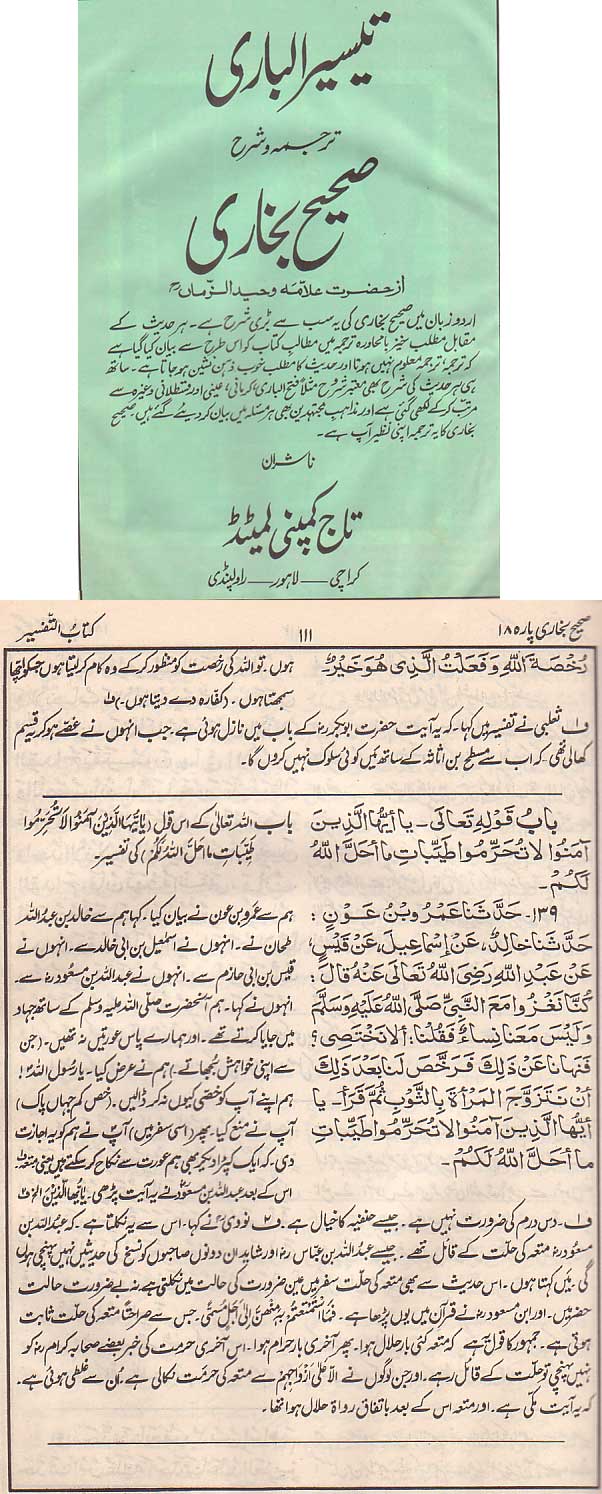 تیسیر الباری
ترجمہ و شرح
صحیح بخاری
از حضرت علامہ وحید الزّماںؒ
اردو زبان میں صحیح بخاری کی یہ سب سے بڑی شرح ہے۔ ہر حدیث کے
مقابل مطلب خیز بامحاورہ ترجمہ میں مطالب کتاب کو اس طرح سے بیان کیا گیا ہے
کہ ترجمہ، ترجمہ معلوم نہیں ہوتا اور حدیث کا مطلب خوب ذہن نشین ہو جاتا ہے۔ ساتھ
ہی ہر حدیث کی شرح بھی معتبر شروح مثلاً فتح الباری، کرمانی، عینی اور قسطلانی وغیرہ سے
مرتب کر کے لکھی گئی ہے اور مذاہب مجتہدین بھی ہر مسئلہ میں بیان کر دیئے گئے ہیں صحیح
بخاری کا یہ ترجمہ اپنی نظیر آپ ہے۔
ناشران
تاج کمپنی لمیٹڈ
کراچی — لاہور — راولپنڈی
صحیح بخاری پارہ ۱۸
۱۱۱
کتابُ التّفسیر
رُخْصَةَ اللّٰهِ وَفَعَلْتُ الَّذِي هُوَ خَيْرٌ۔
ہوں۔ تو اللہ کی رخصت کو منظور کر کے وہ کام کر لیتا ہوں جسکو اچھا
سمجھتا ہوں۔ (کفارہ دے دیتا ہوں۔)
ف۱ ثعلبی نے تفسیر میں کہا۔ کہ یہ آیت حضرت ابوبکرؓ کے باب میں نازل ہوئی ہے۔ جب انہوں نے غصے ہو کر یہ قسم
کھالی تھی۔ کہ اب سے مسطح بن اثاثہ کے ساتھ میں کوئی سلوک نہیں کروں گا۔
بابُ قَوْلِهِ تَعَالَى۔ يَا أَيُّهَا الَّذِينَ
آمَنُوا لَا تُحَرِّمُوا طَيِّبَاتِ مَا أَحَلَّ اللّٰهُ
لَكُمْ۔
۱۳۹۔ حَدَّثَنَا عَمْرُو بْنُ عَوْنٍ:
حَدَّثَنَا خَالِدٌ، عَنْ إِسْمَاعِيلَ، عَنْ قَيْسٍ،
عَنْ عَبْدِ اللّٰهِ رَضِيَ اللّٰهُ تَعَالَى عَنْهُ قَالَ:
كُنَّا نَغْزُوا مَعَ النَّبِيِّ صَلَّى اللّٰهُ عَلَيْهِ وَسَلَّمَ
وَلَيْسَ مَعَنَا نِسَاءٌ فَقُلْنَا: أَلَا نَخْتَصِي؟
فَنَهَانَا عَنْ ذٰلِكَ فَرَخَّصَ لَنَا بَعْدَ ذٰلِكَ
أَنْ نَتَزَوَّجَ الْمَرْأَةَ بِالثَّوْبِ ثُمَّ قَرَأَ۔ يَا
أَيُّهَا الَّذِينَ آمَنُوا لَا تُحَرِّمُوا طَيِّبَاتِ
مَا أَحَلَّ اللّٰهُ لَكُمْ۔
باب اللہ تعالیٰ کے اس قول (يَا أَيُّهَا الَّذِينَ آمَنُوا لَا تُحَرِّمُوا
طَيِّبَاتِ مَا أَحَلَّ اللّٰهُ لَكُمْ) کی تفسیر۔
ہم سے عمرو بن عون نے بیان کیا۔ کہا ہم سے خالد بن عبداللہ
طحان نے۔ انہوں نے اسمٰعیل بن ابی خالد سے۔ انہوں نے
قیس بن ابی حازم سے۔ انہوں نے عبداللہ بن مسعودؓ سے۔
انہوں نے کہا۔ ہم آنحضرت صلی اللہ علیہ وسلم کے ساتھ جہاد
میں جایا کرتے تھے۔ اور ہمارے پاس عورتیں نہ تھیں۔ (جن
سے اپنی خواہش بجھاتے۔) ہم نے عرض کیا۔ یا رسول اللہ!
ہم اپنے آپ کو خصی کیوں نہ کر ڈالیں۔ (خص کم جہاں پاک)
آپ نے منع کیا۔ پھر (اسی سفر میں) آپ نے ہم کو یہ اجازت
دی۔ کہ ایک کپڑا دیکر بھی ہم عورت سے نکاح کر سکتے ہیں یعنی متعہ
اس کے بعد عبداللہ بن مسعودؓ نے یہ آیت پڑھی۔ یا ایھا الذین الخ
ف۱۔ دس درم کی ضرورت نہیں ہے۔ جیسے حنفیہ کا خیال ہے۔ ف۲ نوویؒ نے کہا۔ اس سے یہ نکلتا ہے۔ کہ عبداللہ بن
مسعودؓ متعہ کی حلّت کے قائل تھے۔ جیسے عبداللہ بن عباسؓ اور شاید ان دونوں صاحبوں کو نسخ کی حدیثیں نہیں پہنچی ہوں
گی۔ میں کہتا ہوں۔ اس حدیث سے بھی متعہ کی حلّت سفر میں عین ضرورت کی حالت میں نکلتی ہے، نہ بے ضرورت حالت
حضر میں۔ اور ابن مسعودؓ نے قرآن میں یوں پڑھا ہے۔ فَمَا اسْتَمْتَعْتُمْ بِهٖ مِنْهُنَّ إِلٰى أَجَلٍ مُسَمًّى۔ جس سے صراحتاً متعہ کی حلت ثابت
ہوتی ہے۔ جمہور کا قول ہے کہ متعہ کئی بار حلال ہوا۔ پھر آخری بار حرام ہوا۔ اس آخری حرمت کی خبر بعضے صحابہ کرامؓ کو
نہیں پہنچی تو حلّت کے قائل رہے۔ اور جن لوگوں نے الا علیٰ ازواجہم سے متعہ کی حرمت نکالی ہے۔ اُن سے غلطی ہوئی ہے۔
کہ یہ آیت مکی ہے۔ اور متعہ اس کے بعد باتفاق رواۃ حلال ہوا تھا۔